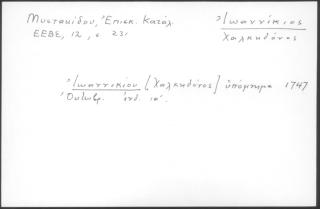 Μυστακίδου, Ἐπισκ. Κατάλ.
ΕΕΒΣ, 12, σ. 231
Ἰωαννίκιος
Χαλκηδόνος
Ἰωαννικίου [Χαλκηδόνος] ὑπόμνημα 1747
Ὀκτωβρ. ἰνδ. ια΄.